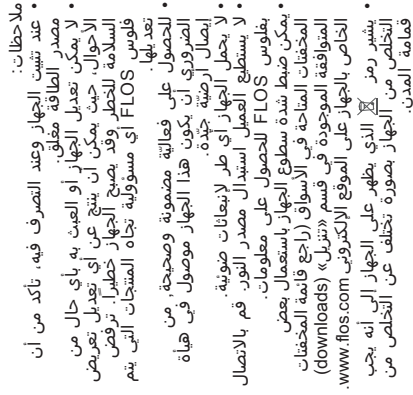 ملاحظات:
• عند تثبيت الجهاز وعند التصرف فيه، تأكد من أن
مصدر الطاقة مغلق.
• لا يمكن تعديل الجهاز أو العبث به بأي حال من
الأحوال، حيث يمكن أن ينتج عن أي تعديل تعريض
السلامة للخطر وقد يصبح الجهاز خطيرا. ترفض
فلوس FLOS أي مسؤولية تجاه المنتجات التي يتم
تعديلها.
• للحصول على فعالية مضمونة وصحيحة، من
الضروري أن يكون هذا الجهاز موصول في هيأة
إيصال أرضية جيّدة.
• لا يحمل الجهاز أي طر لإنبعاثات ضوئية.
• لا يستطيع العميل استبدال مصدر النور. قم بالاتصال
بفلوس FLOS للحصول على معلومات.
• يمكن ضبط شدة سطوع الجهاز باستعمال بعض
المخفتات المتاحة في الأسواق (راجع قائمة المخفتات
المتوافقة الموجودة في قسم «تنزيل» (downloads)
الخاص بالجهاز على الموقع الإلكتروني www.flos.com.
• يشير رمز الذي يظهر على الجهاز إلى أنه يجب
التخلص من الجهاز بصورة تختلف عن التخلص من
قمامة المدن.